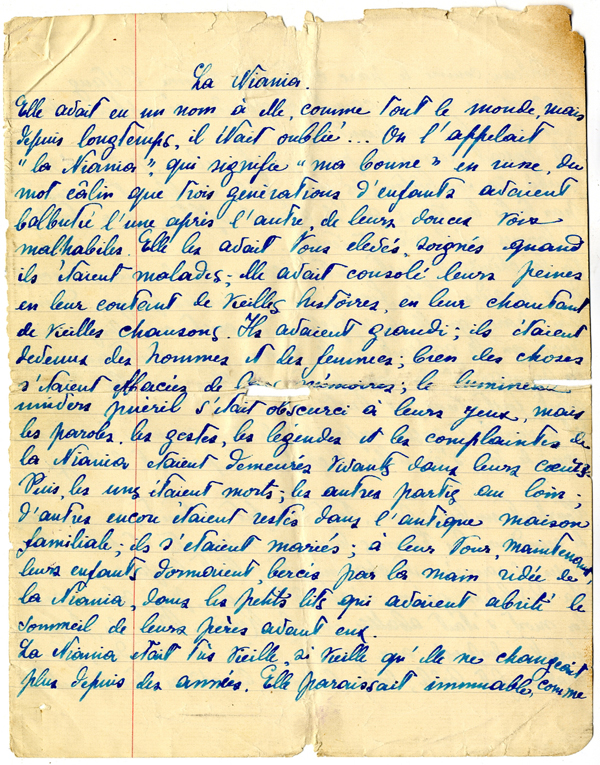 La Niania.
Elle avait eu un nom à elle, comme tout le monde, mais
depuis longtemps, il était oublié... On l'appelait
"la Niania", qui signifie "ma bonne" en russe, du
mot câlin que trois générations d'enfants avaient
balbutié l'une après l'autre de leurs douces voix
malhabiles. Elle les avait tous élevés, soignés quand
ils étaient malades; elle avait consolé leurs peines
en leur contant de vieilles histoires, en leur chantant
de vieilles chansons. Ils avaient grandi; ils étaient
devenus des hommes et des femmes; bien des choses
s'étaient effacées de leurs mémoires; le lumineux
univers puéril s'était obscurci à leurs yeux, mais
les paroles, les gestes, les légendes et les complaintes de
la Niania étaient demeurés vivants dans leurs cœurs.
Puis, les uns étaient morts; les autres partis au loin;
d'autres encore étaient restés dans l'antique maison
familiale; ils s'étaient mariés; à leur tour, maintenant,
leurs enfants dormaient, bercés par la main ridée de
la Niania, dans les petits lits qui avaient abrité le
sommeil de leurs pères avant eux.
La Niania était très vieille, si vieille qu'elle ne changeait
plus depuis des années. Elle paraissait immuable, comme